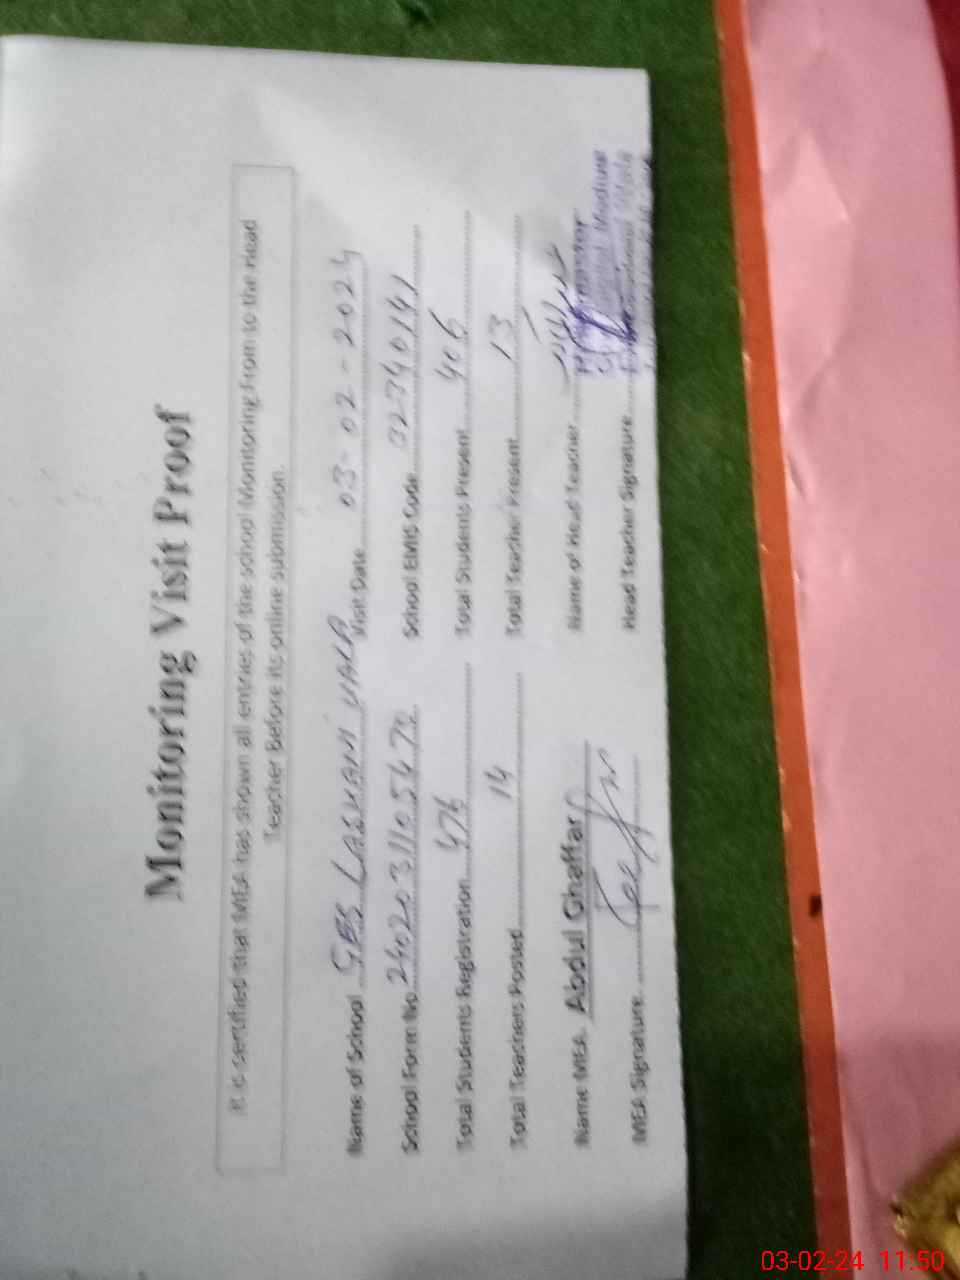 Monitoring Visit Proof
It is certified that MEA has shown all entries of the school Monitoring From to the Head
Teacher Before its online submission.
Name of School GES LASHARI WALA Visit Date 03-02-2024
School Form No School EMIS Code 32340141
Total Students Registration 476 Total Students Present 406
Total Teachers Posted 14 Total Teacher Present 13
Name MEA. Abdul Ghaffar Name of Head Teacher
MEA Signature Head Teacher Signature
03-02-24 11:50